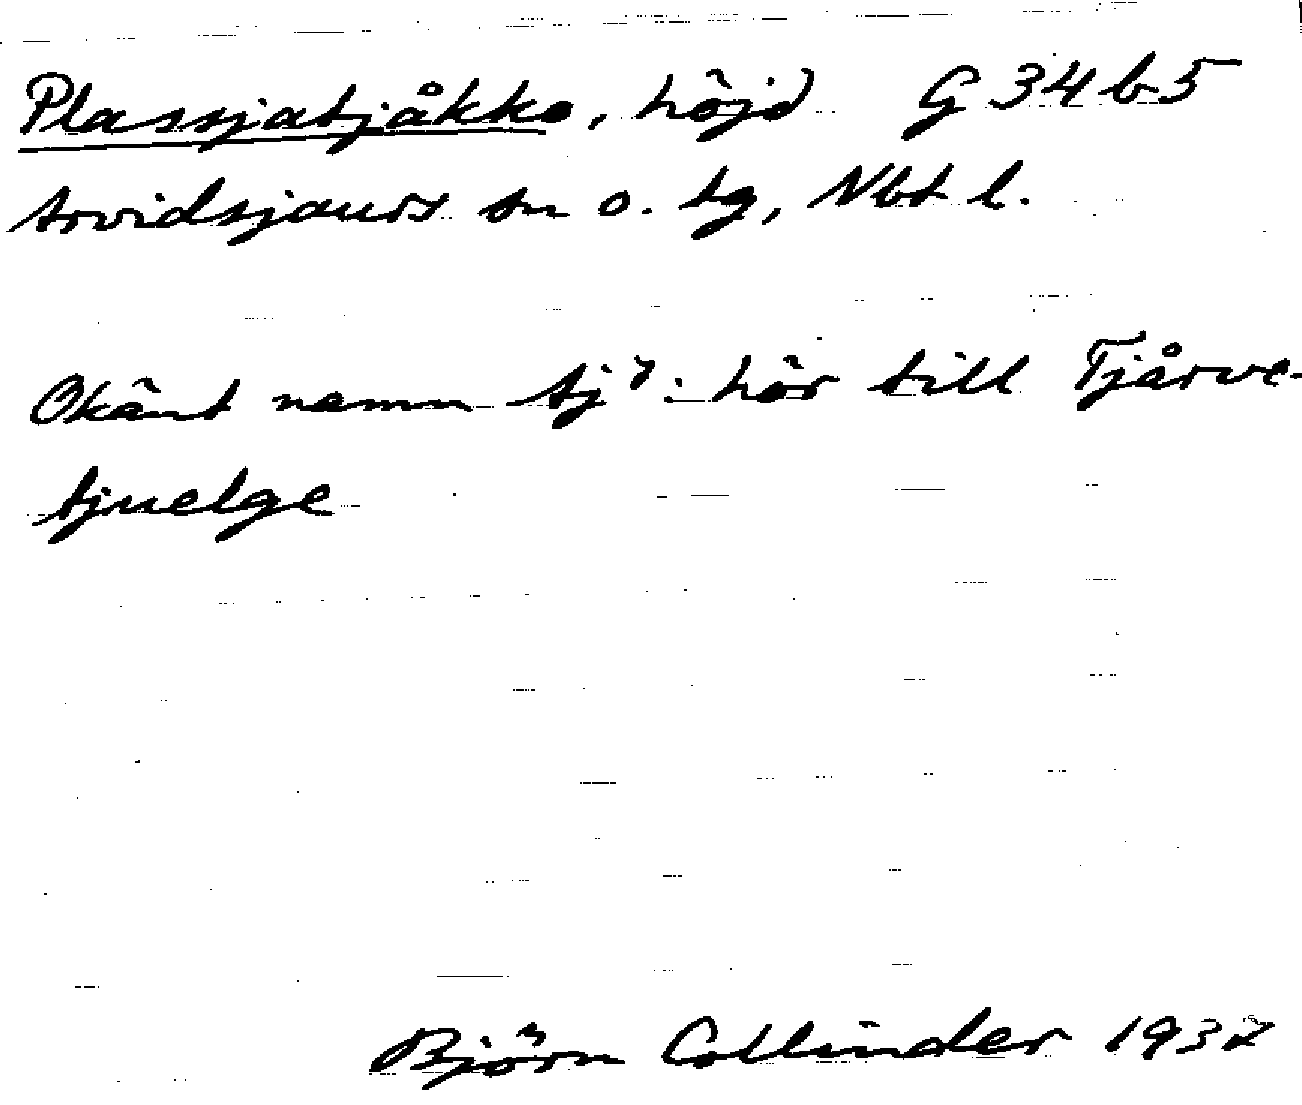 Plassjatjåkko, höjd G 34 b 5
Arvidsjaurs sn o. tg, Nbt l.
Okänt namn tj hör till Tjårve-
tjuelge
Björn Collinder 1937